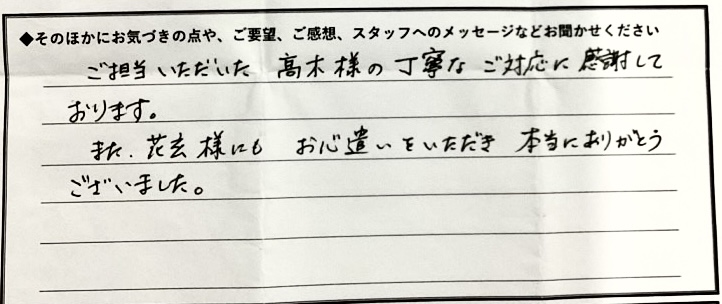 ◆そのほかにお気づきの点や、ご要望、ご感想、スタッフへのメッセージなどお聞かせください
ご担当いただいた 高木様の丁寧なご対応に感謝して
おります。
また、花玄様にも お心遣いをいただき 本当にありがとう
ございました。